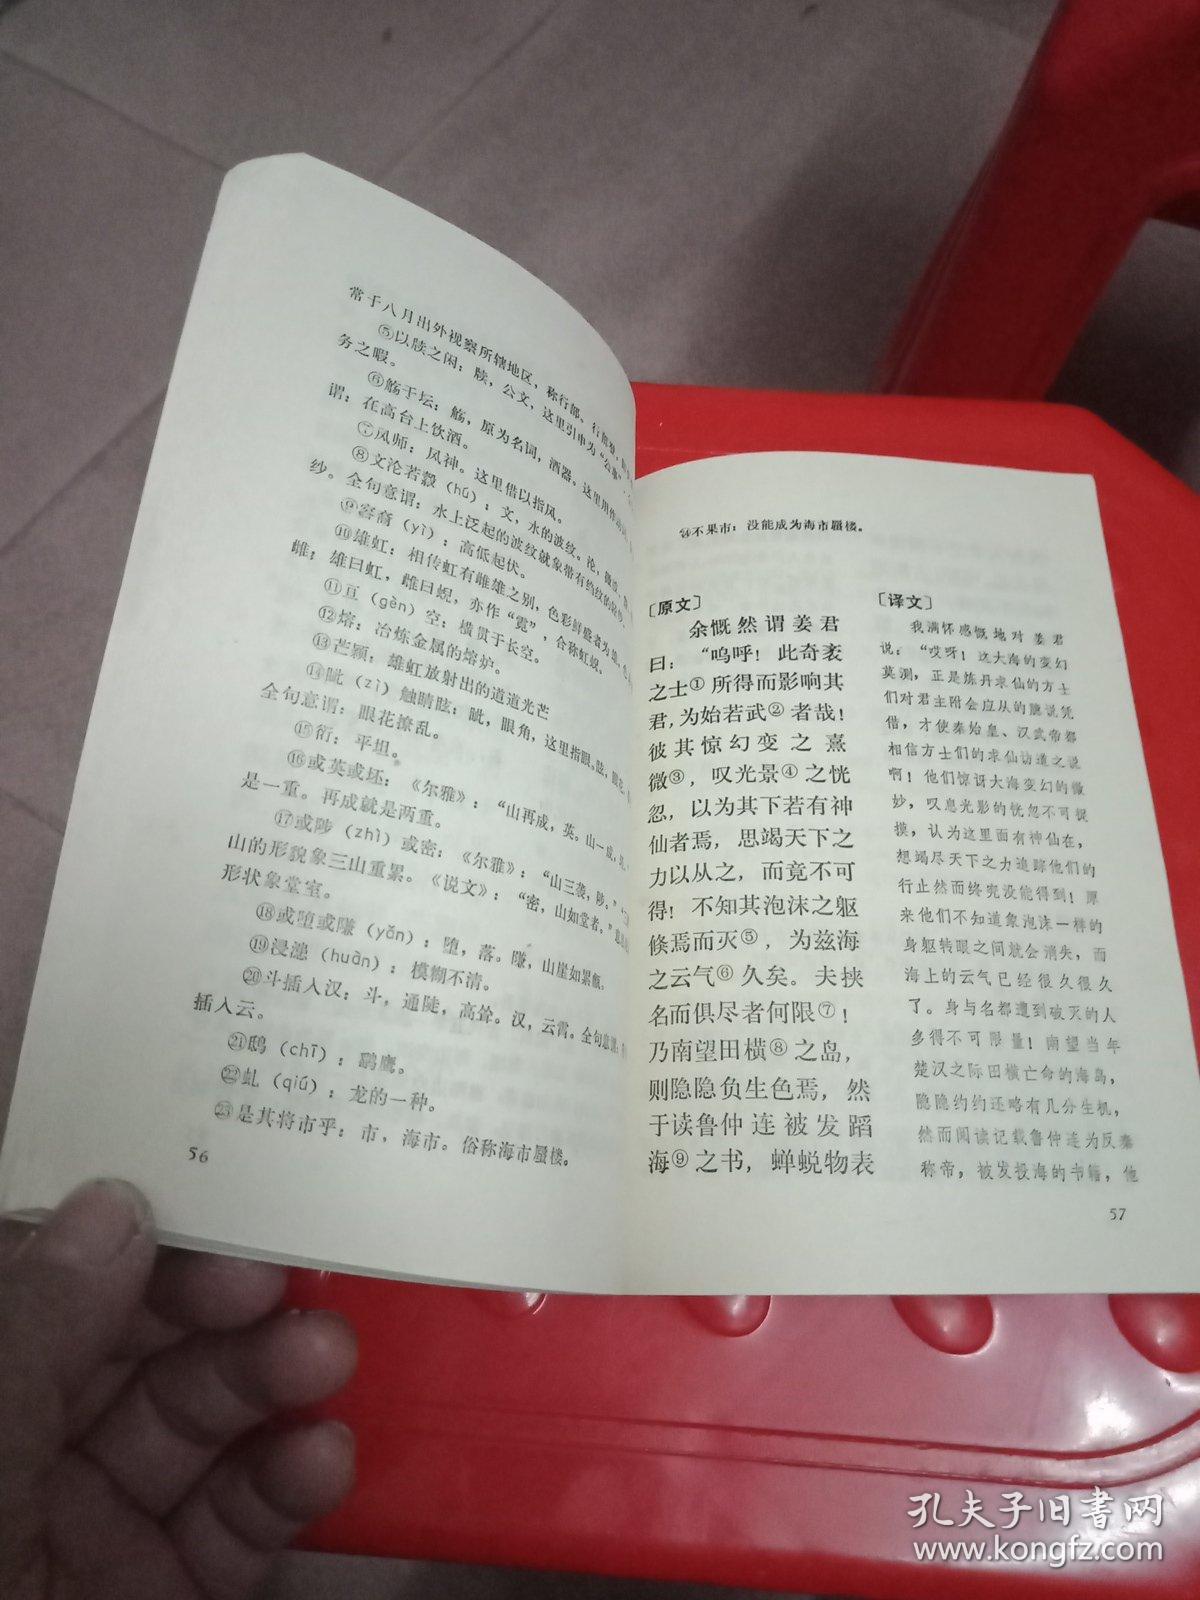 常于八月出外视察所辖地区，称行部。行部
⑤以牍之闲：牍，公文，这里引申为“公事”
务之暇。
⑥觞于坛：觞，原为名词，酒器。这里用作动词
谓：在高台上饮酒。
⑦风师：风神。这里借以指风。
⑧文沦若縠（hú）：文，水的波纹。沦，微波
纱。全句意谓：水上泛起的波纹就象带有绉纹的
⑨窞裔（yì）：高低起伏。
⑩雄虹：相传虹有雌雄之别，色彩鲜盛者为雄，
雌；雄曰虹，雌曰蜺，亦作“霓”，合称虹蜺。
⑪亘（gèn）空：横贯于长空。
⑫熔：冶炼金属的熔炉。
⑬芒颖：雄虹放射出的道道光芒
⑭眦（zì）触睛眩：眦，眼角，这里指眼。眩，眼花
全句意谓：眼花撩乱。
⑮衍：平坦。
⑯或英或坯：《尔雅》：“山再成，英。山一成，坯
是一重。再成就是两重。
⑰或陟（zhì）或密：《尔雅》：“山三袭，陟。”
山的形貌象三山重累。《说文》：“密，山如堂者。”意思
形状象堂室。
⑱或堕或隒（yǎn）：堕，落。隒，山崖如累甗。
⑲浸漶（huàn）：模糊不清。
⑳斗插入汉：斗，通陡，高耸。汉，云霄。全句意谓：
插入云。
㉑鸱（chī）：鹞鹰。
㉒虬（qiú）：龙的一种。
㉓是其将市乎：市，海市。俗称海市蜃楼。
56
㉔不果市：没能成为海市蜃楼。
〔原文〕
余慨然谓姜君
曰：“呜呼！此奇袤
之士①所得而影响其
君，为始若武②者哉！
彼其惊幻变之熹
微③，叹光景④之恍
忽，以为其下若有神
仙者焉，思竭天下之
力以从之，而竟不可
得！不知其泡沫之躯
倏焉而灭⑤，为兹海
之云气⑥久矣。夫挟
名而俱尽者何限⑦！
乃南望田横⑧之岛，
则隐隐负生色焉，然
于读鲁仲连被发蹈
海⑨之书，蝉蜕物表
〔译文〕
我满怀感慨地对姜君
说：“哎呀！这大海的变幻
莫测，正是炼丹求仙的方士
们对君主附会应从的臆说凭
借，才使秦始皇、汉武帝都
相信方士们的求仙访道之说
啊！他们惊讶大海变幻的微
妙，叹息光影的恍忽不可捉
摸，认为这里面有神仙在，
想竭尽天下之力追踪他们的
行止然而终究没能得到！原
来他们不知道象泡沫一样的
身躯转眼之间就会消失，而
海上的云气已经很久很久
了。身与名都遭到破灭的人
多得不可限量！南望当年
楚汉之际田横亡命的海岛，
隐隐约约还略有几分生机，
然而阅读记载鲁仲连为反秦
称帝，被发投海的书籍，他
57
孔夫子旧书网
www.kongfz.com